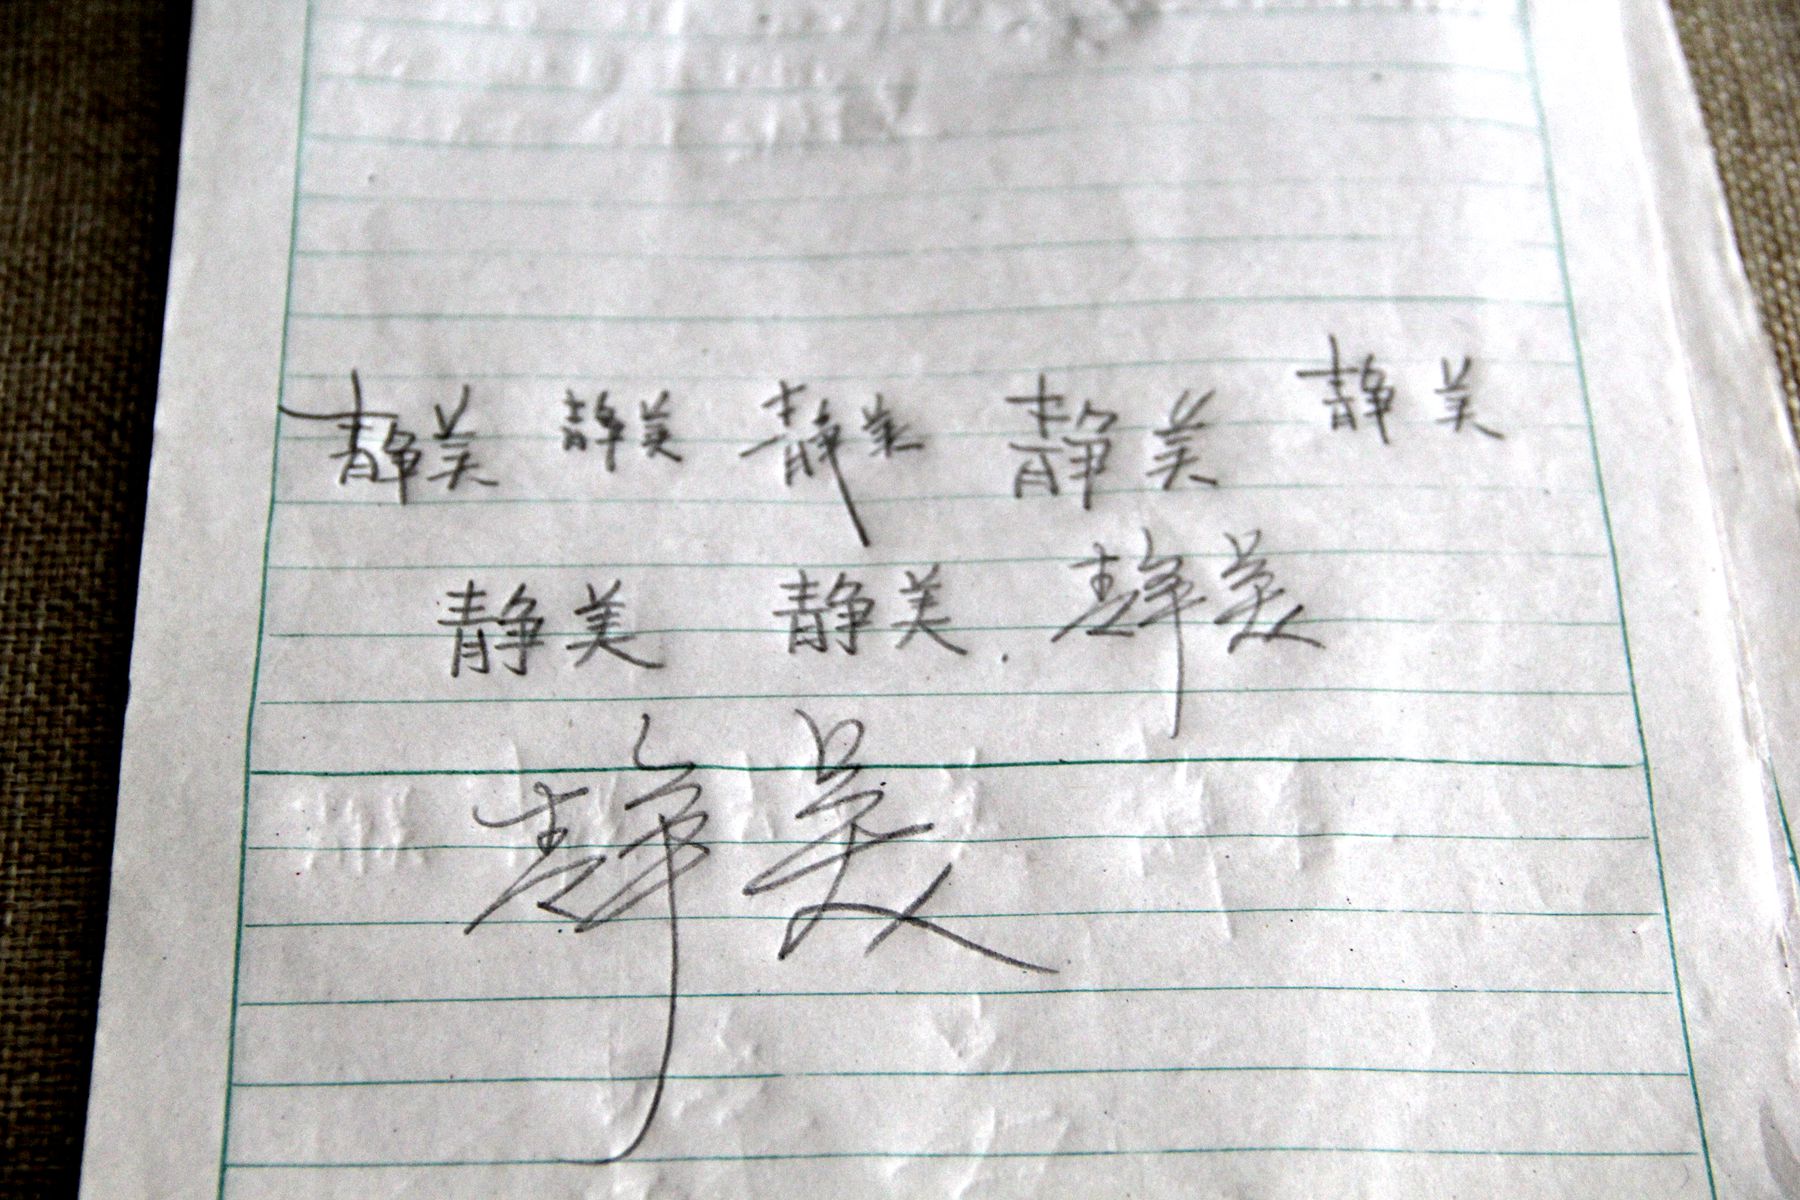 静美 静美 静美 静美 静美
静美 静美 静美
静美